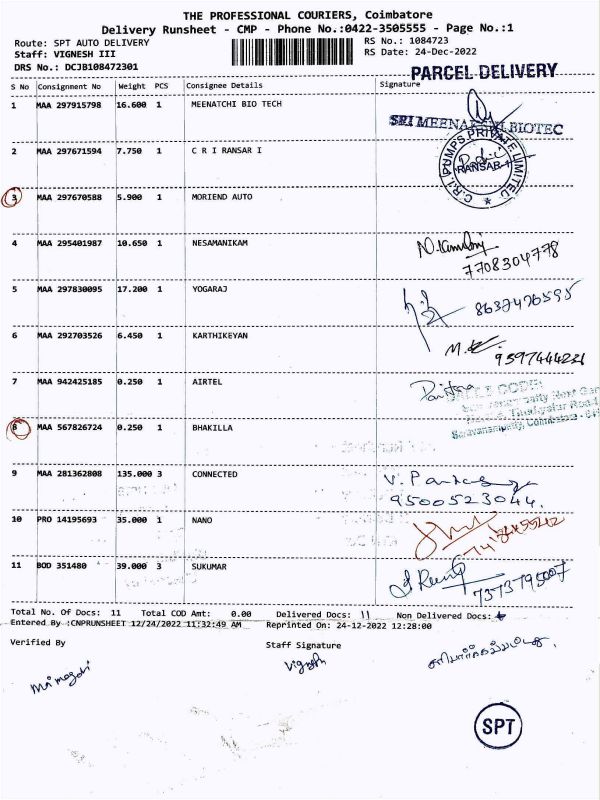 THE PROFESSIONAL COURIERS, Coimbatore
Delivery Runsheet - CMP - Phone No.:0422-3505555 - Page No.:1
Route: SPT AUTO DELIVERY RS No.: 1084723
Staff: VIGNESH III RS Date: 24-Dec-2022
DRS No.: DCJB108472301
PARCEL DELIVERY
S No Consignment No Weight PCS Consignee Details Signature
1 MAA 297915798 16.600 1 MEENATCHI BIO TECH
BIOTEC
2 MAA 297671594 7.750 1 C R I RANSAR I
C.R.I. PUMPS PRIVATE LIMITED
RANSAR-1
3 MAA 297670588 5.900 1 MORIEND AUTO
4 MAA 295401987 10.650 1 NESAMANIKAM
7708304778
5 MAA 297830095 17.200 1 YOGARAJ
8637476595
6 MAA 292703526 6.450 1 KARTHIKEYAN
9597444231
7 MAA 942425185 0.250 1 AIRTEL
8 MAA 567826724 0.250 1 BHAKILLA
9 MAA 281362808 135.000 3 CONNECTED
9500523044.
10 PRO 14195693 35.000 1 NANO
11 BOD 351480 39.000 3 SUKUMAR
7373795007
Total No. Of Docs: 11 Total COD Amt: 0.00 Delivered Docs: 11 Non Delivered Docs:
Entered By :CNPRUNSHEET 12/24/2022 11:32:49 AM Reprinted On: 24-12-2022 12:28:00
Verified By Staff Signature
Vignesh
SPT